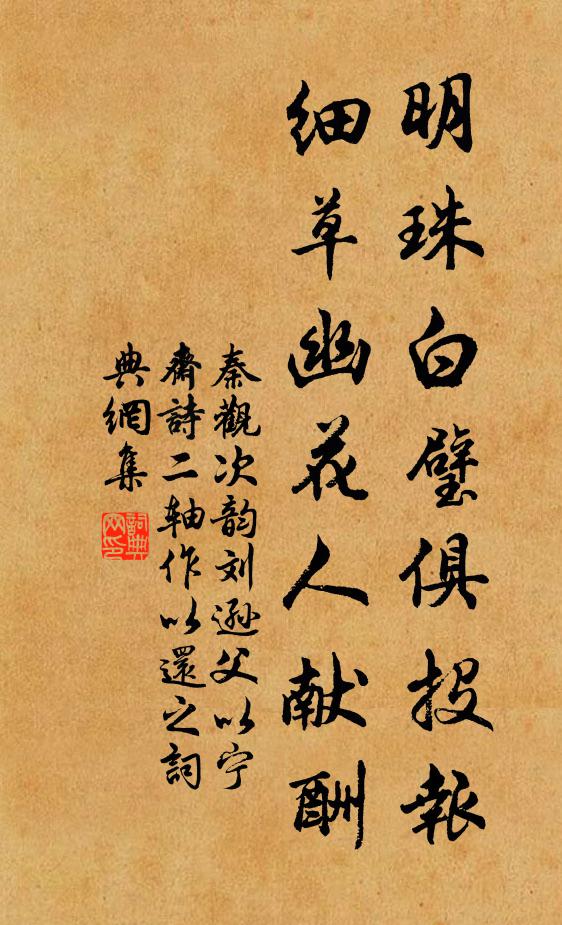 明珠白璧俱投報
細草幽花人献酬
秦觀次韵刘遜父以宁
齋詩二轴作以還之詞
典網集
詞典
网印